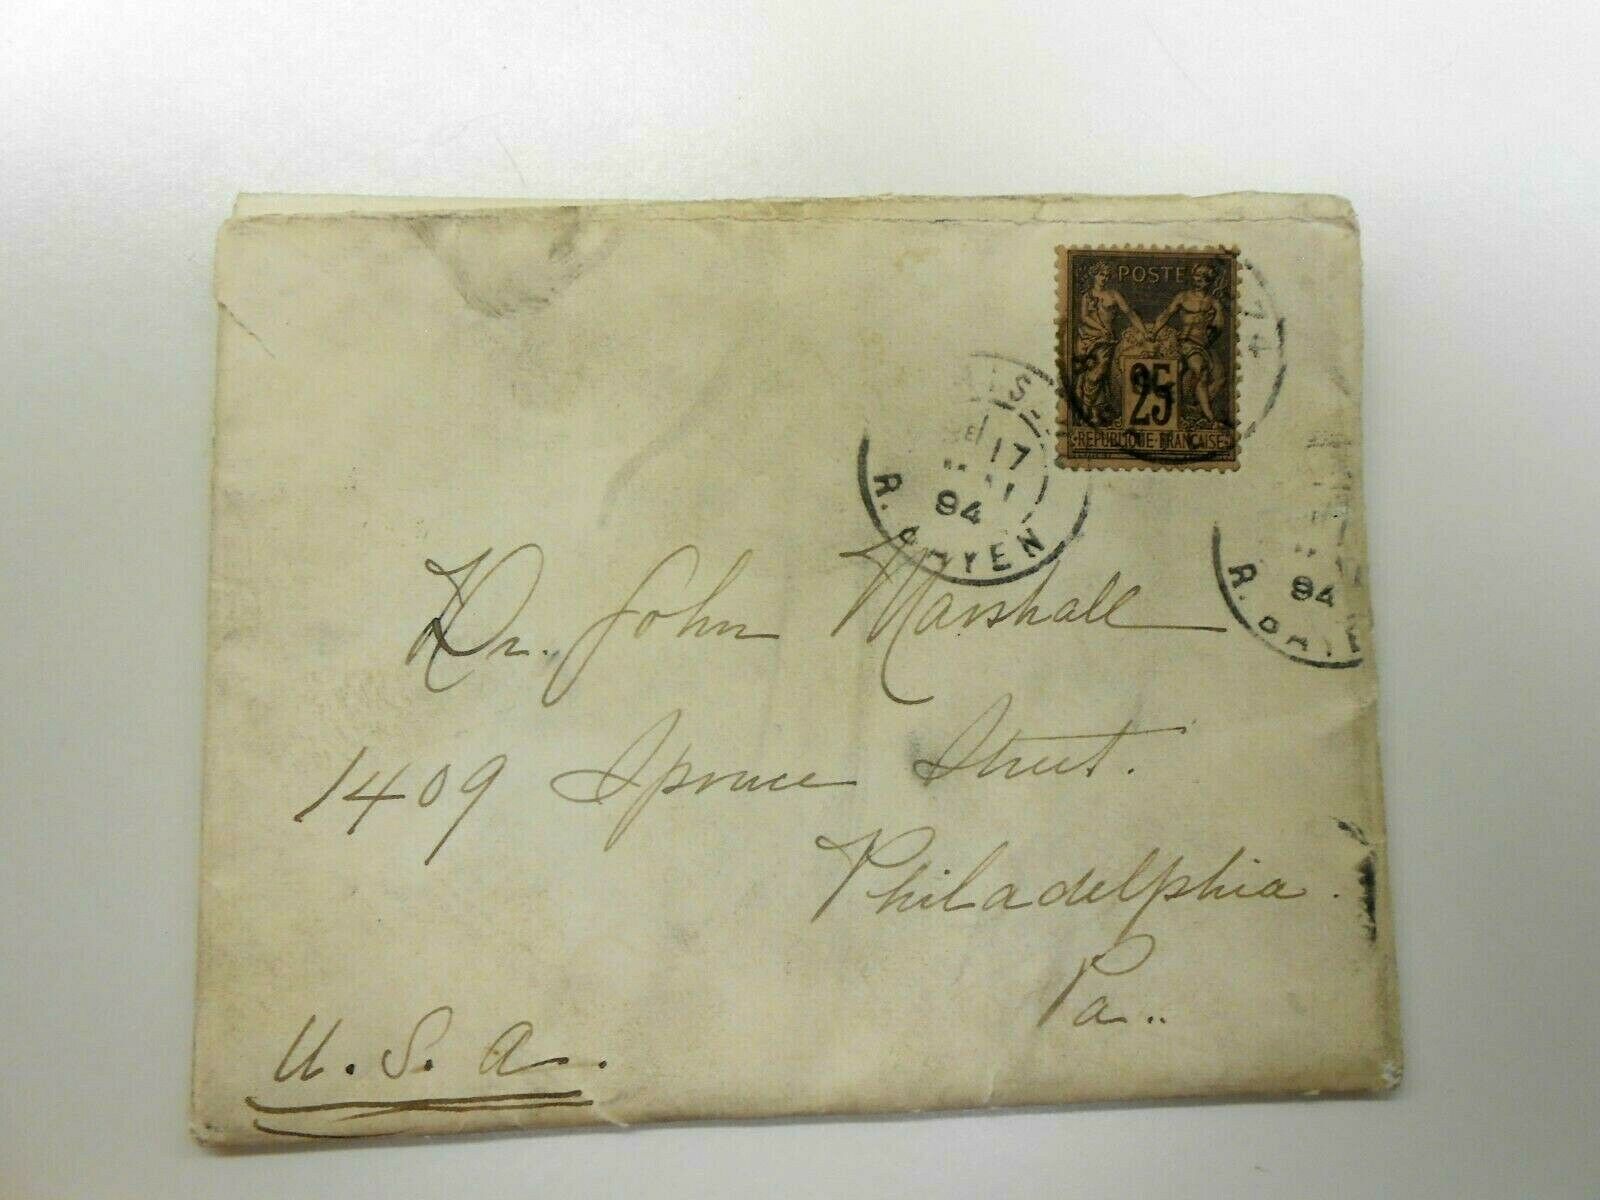 POSTE
25
REPUBLIQUE FRANCAISE
17
94
R. BAYEN
94
R. BAYE
Dr. John Marshall
1409 Spruce Street.
Philadelphia.
Pa..
U. S. A.